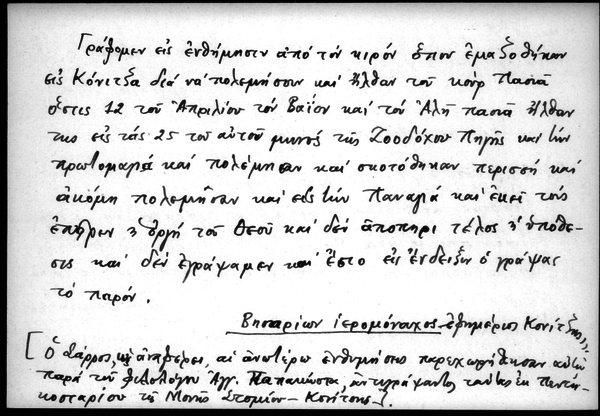 Γράφομεν εἰς ἐνθήμησιν ἀπό τόν κιρόν ὅπου ἐμαζοθήκαν
εἰς Κόνιτζα διά νά πολεμήσουν καί ἦλθαν τοῦ κούρ Πασιᾶ
ὅστις 12 τοῦ Ἀπριλίου τόν Βαΐον καί τοῦ Ἀλῆ πασιᾶ ἦλθαν
εἰς τάς 25 τοῦ αὐτοῦ μηνός τῆς Ζοοδόχου Πηγῆς καί τήν
πρωτομαγιά καί πολέμησαν καί σκοτόθηκαν περισσή καί
ἀκόμη πολεμῆσαν καί εἰς τήν Παναγιά καί ἐκεῖ τούς
ἐπῆρεν ἡ ὀργή τοῦ Θεοῦ καί δέν τέλος ἡ ὑπόθε-
σις καί δέν ἐγράψαμεν καί ἔστο εἰς ἔνδειξιν ὁ γράψας
τό παρόν.
Βησαρίων ἱερομόναχος ἐφημέριος Κονίτζης
[ὁ Σάρρος, ὡς ἀναφέρει, αἱ ἀνωτέρω ἐνθυμήσεις παρεχωρήθησαν αὐτῷ
παρά τοῦ φιλολόγου Ἀγγ. Παπακώστα, ἀντιγράψαντος ταύτας ἐκ Πεντη-
κοσταρίου τῆς Μονῆς Στομίου - Κονίτσης].